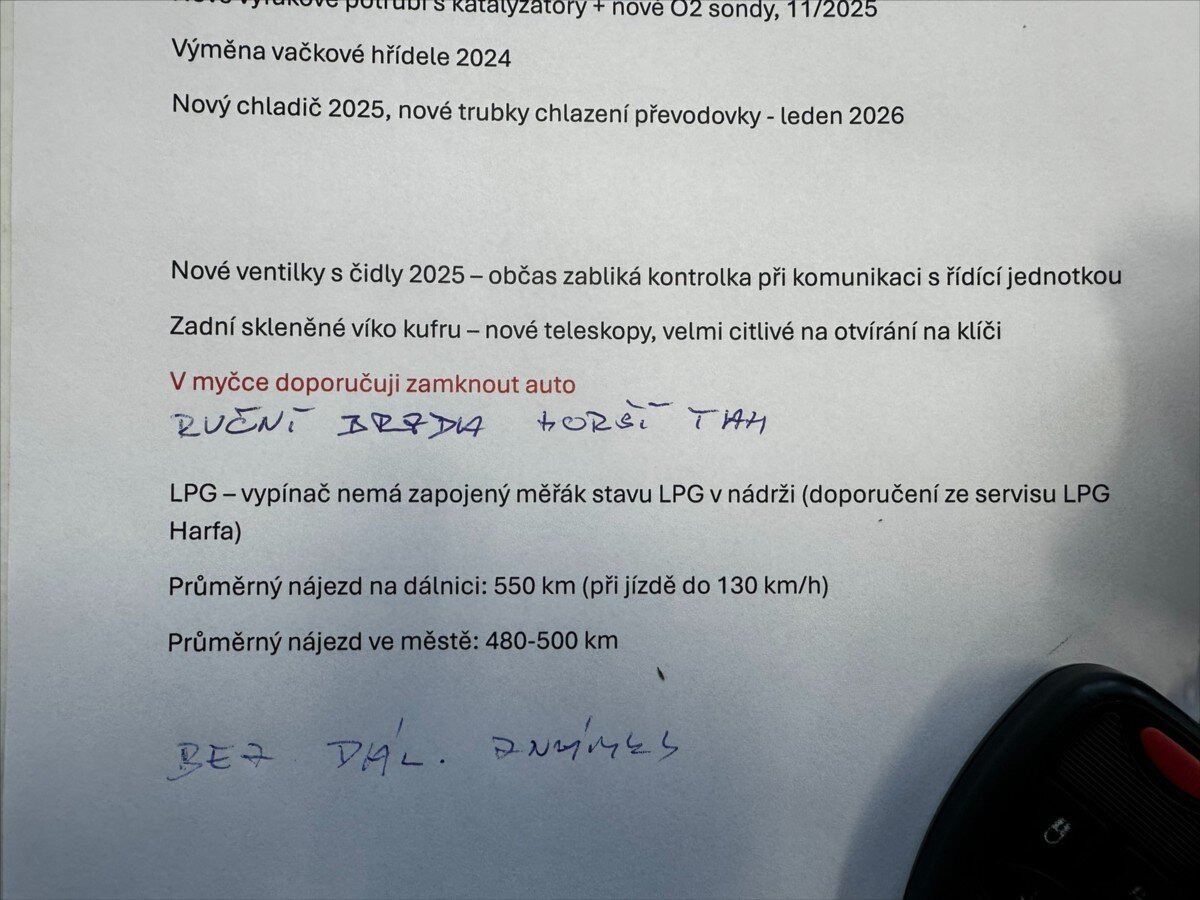 Nové výfukové potrubí s katalyzátory + nové O2 sondy, 11/2025
Výměna vačkové hřídele 2024
Nový chladič 2025, nové trubky chlazení převodovky - leden 2026
Nové ventilky s čidly 2025 – občas zabliká kontrolka při komunikaci s řídící jednotkou
Zadní skleněné víko kufru – nové teleskopy, velmi citlivé na otvírání na klíči
V myčce doporučuji zamknout auto
RUČNÍ BRZDA HORŠÍ TAH
LPG – vypínač nemá zapojený měřák stavu LPG v nádrži (doporučení ze servisu LPG
Harfa)
Průměrný nájezd na dálnici: 550 km (při jízdě do 130 km/h)
Průměrný nájezd ve městě: 480-500 km
BEZ DÁL. ZNÁMKY